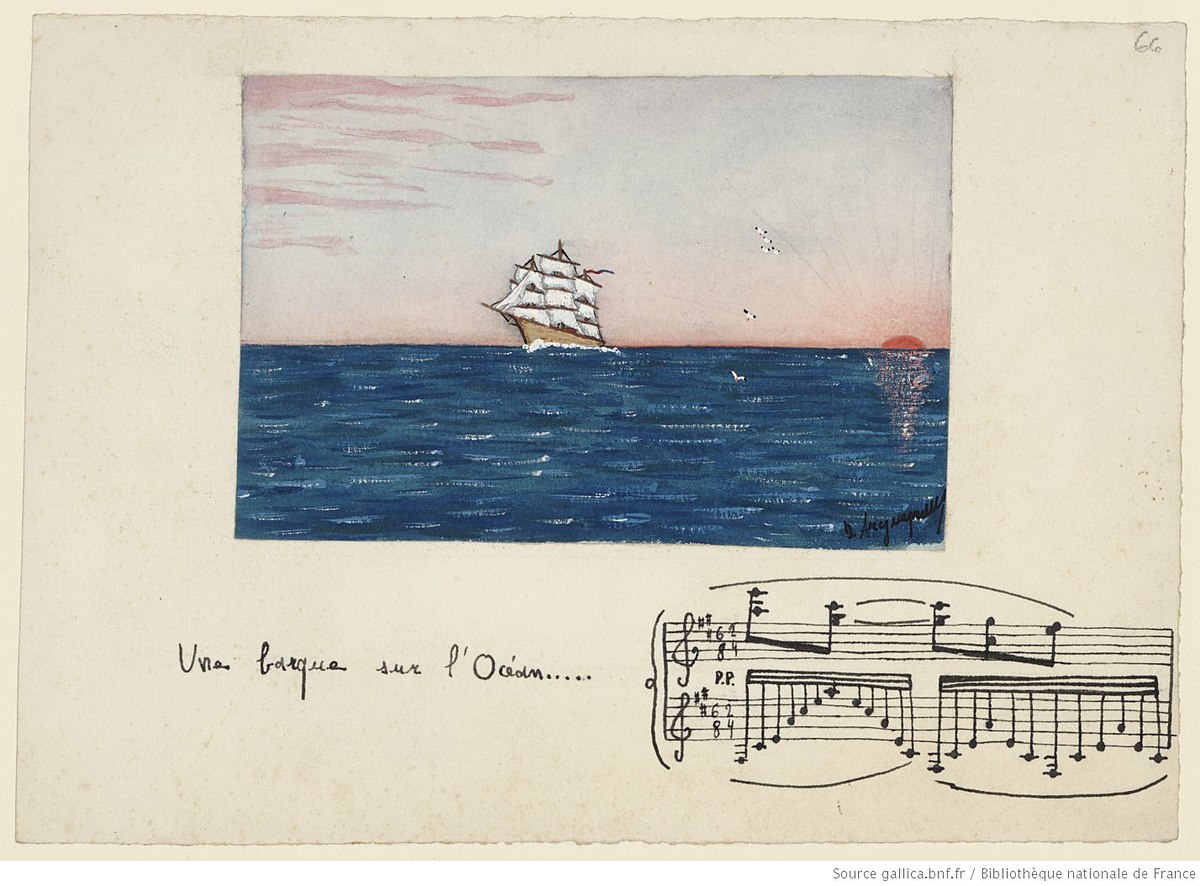 66
Une barque sur l'Océan.....
6 2
8 4
P.P.
6 2
8 4
Source gallica.bnf.fr / Bibliothèque nationale de France